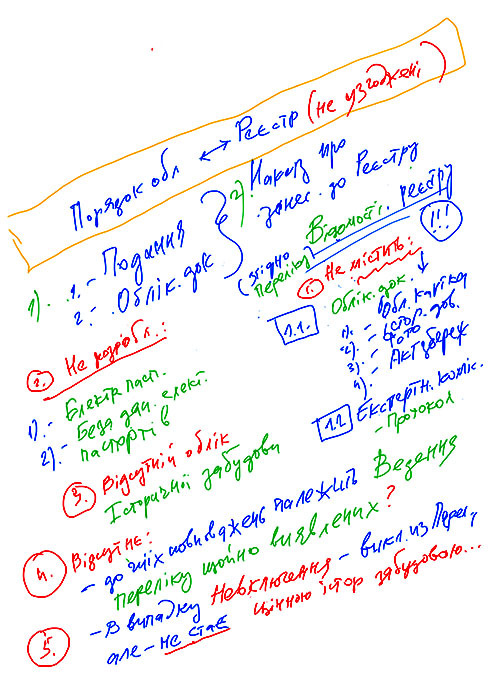 Порядок обл ↔ Реєстр (не узгоджені)
1). 1.- Подання
2.- Облік. док
2). Наказ про
занес. до Реєстру
(згідно Переліку)
Відомості. реєстру
!!!
1. Не містить:
1.1. Облік. док.
1).- Обл. картка
2).- Істор. дов.
3).- Фото
4).- Акт збереж
1.2 Експертн. коміс.
- Протокол
2. Не розробл.:
1).- Електр. пасп.
2).- База дан. елект.
паспортів
3. Відсутній облік
Історичної забудови
4. Відсутнє:
- до чиїх повноважень належить Ведення
переліку щойно виявлених?
5. - В випадку Невключення - викл. из Перел,
але - не стає цінною істор забудовою...